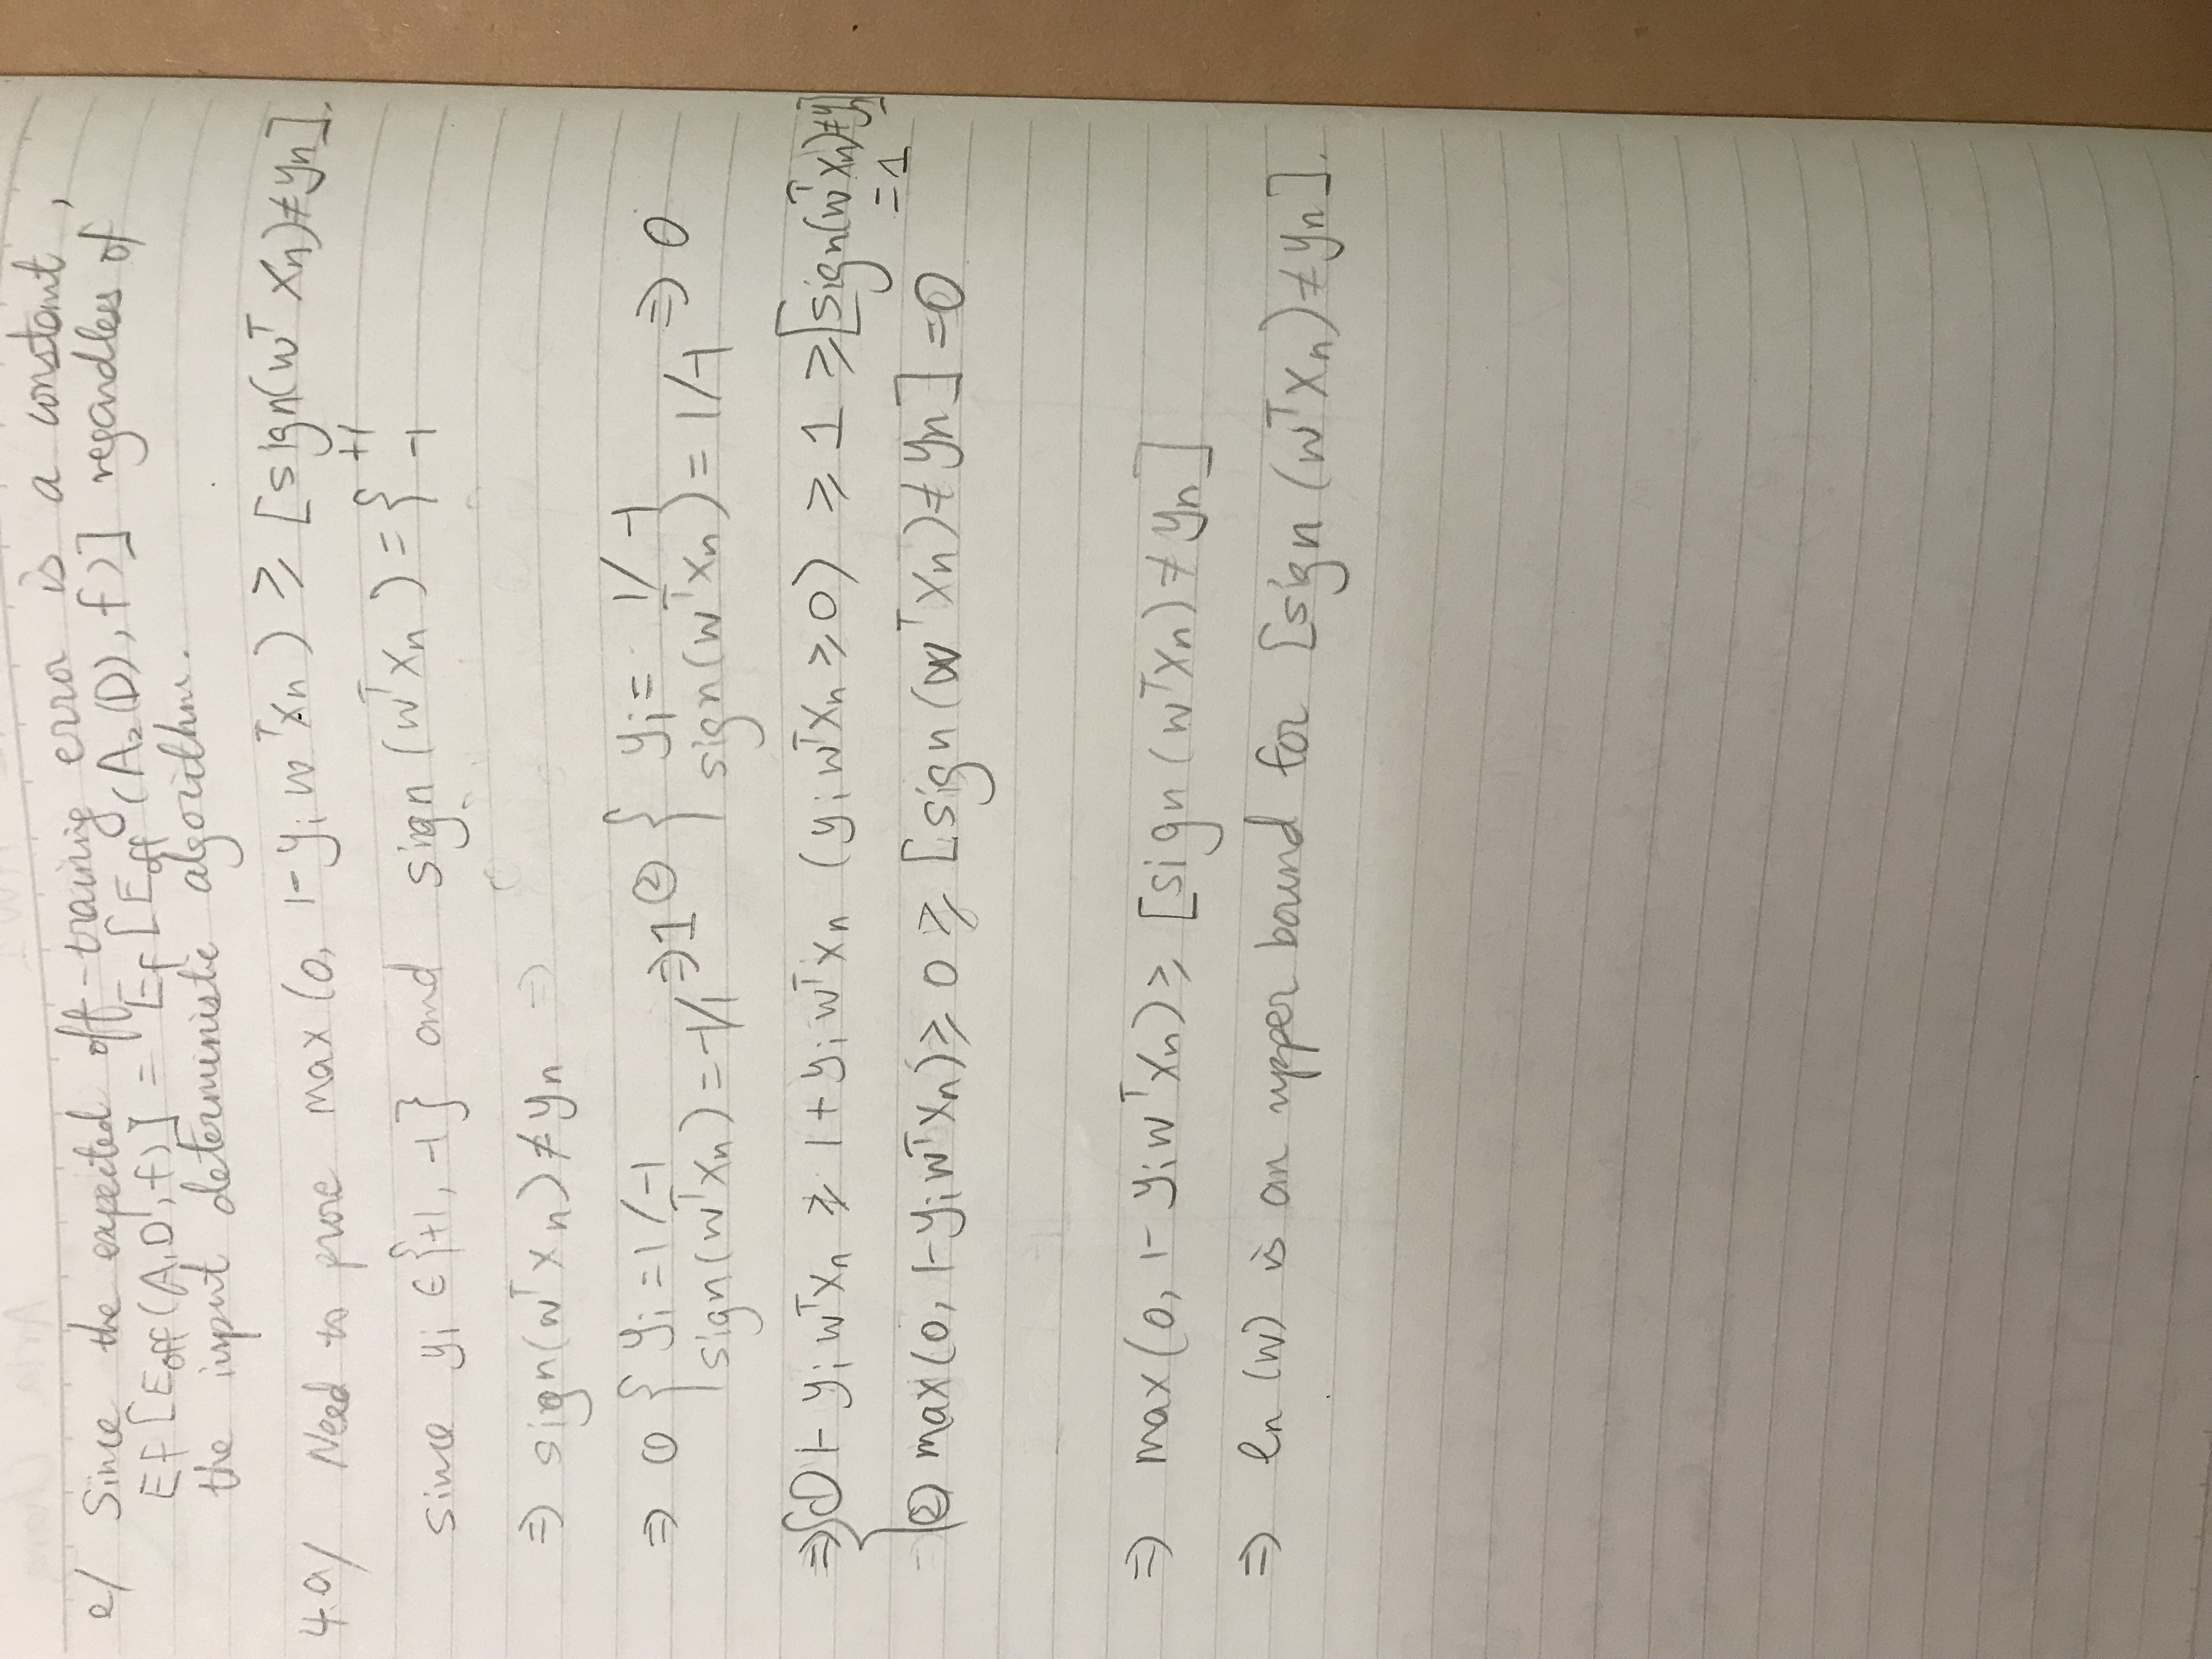 e/ Since the expected off-training error is a constant,
Ef [Eoff (A₁D, f)] = Ef [Eoff (A₂(D), f)] regardless of
the input deterministic algorithm.
4.a/ Need to prove max (0, 1- yᵢ wᵀxₙ) ≥ [sign(wᵀ xₙ)≠yₙ].
since yᵢ ∈ {+1, -1} and sign (wᵀxₙ) = { +1
-1
⇒ sign(wᵀxₙ) ≠ yₙ ⇒
⇒ ① { yᵢ = 1/-1 ⇒ 1 ② { yᵢ = 1/-1 ⇒ 0
sign(wᵀxₙ) = -1/1 sign(wᵀxₙ) = 1/-1
⇒ { ① 1- yᵢ wᵀxₙ ≥ 1 + yᵢ wᵀxₙ (yᵢ wᵀxₙ ≥ 0) ≥ 1 ≥ [sign(wᵀxₙ)≠yₙ]
= 1
② max(0, 1-yᵢwᵀxₙ) ≥ 0 ≥ [sign(wᵀxₙ) ≠ yₙ] = 0
⇒ max(0, 1- yᵢwᵀxₙ) ≥ [sign (wᵀxₙ) ≠ yₙ]
⇒ eₙ (w) is an upper bound for [sign (wᵀxₙ) ≠ yₙ].